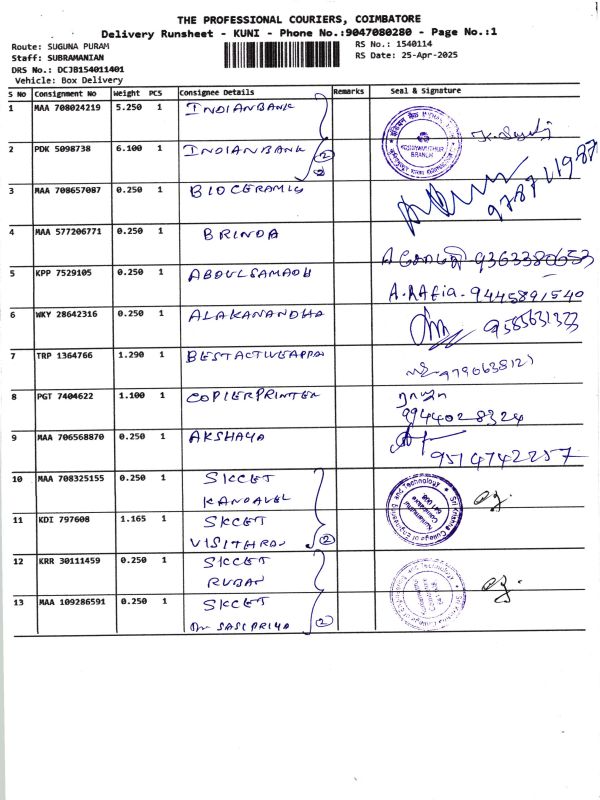 THE PROFESSIONAL COURIERS, COIMBATORE
Delivery Runsheet - KUNI - Phone No.:9047080280 - Page No.:1
Route: SUGUNA PURAM
RS No.: 1540114
Staff: SUBRAMANIAN
RS Date: 25-Apr-2025
DRS No.: DCJB154011401
Vehicle: Box Delivery
S No Consignment No Weight PCS Consignee Details Remarks Seal & Signature
1 MAA 708024219 5.250 1 INDIANBANK
2 PDK 5098738 6.100 1 INDIANBANK 2
BRANCH
3 MAA 708657087 0.250 1 BIOCERAMIS 9787711987
4 MAA 577206771 0.250 1 BRINDA 9363380653
5 KPP 7529105 0.250 1 ABDULSAMADH A.RAFIA. 9445891540
6 WKY 28642316 0.250 1 ALAKANANDHA 9585631333
7 TRP 1364766 1.290 1 BESTACTIVEAPPA 9790638121
8 PGT 7404622 1.100 1 COPIERPRINTER
9944028324
9 MAA 706568870 0.250 1 AKSHAYA 9514742257
10 MAA 708325155 0.250 1 SKCET
KANDAVEL
11 KDI 797608 1.165 1 SKCET
VISITHRA 2
Sri Krishna College of Engineering and Technology
Kuniamuthur
Coimbatore
641 008
12 KRR 30111459 0.250 1 SKCET
RUBAN
13 MAA 109286591 0.250 1 SKCET
Dr SASIPRIYA 2